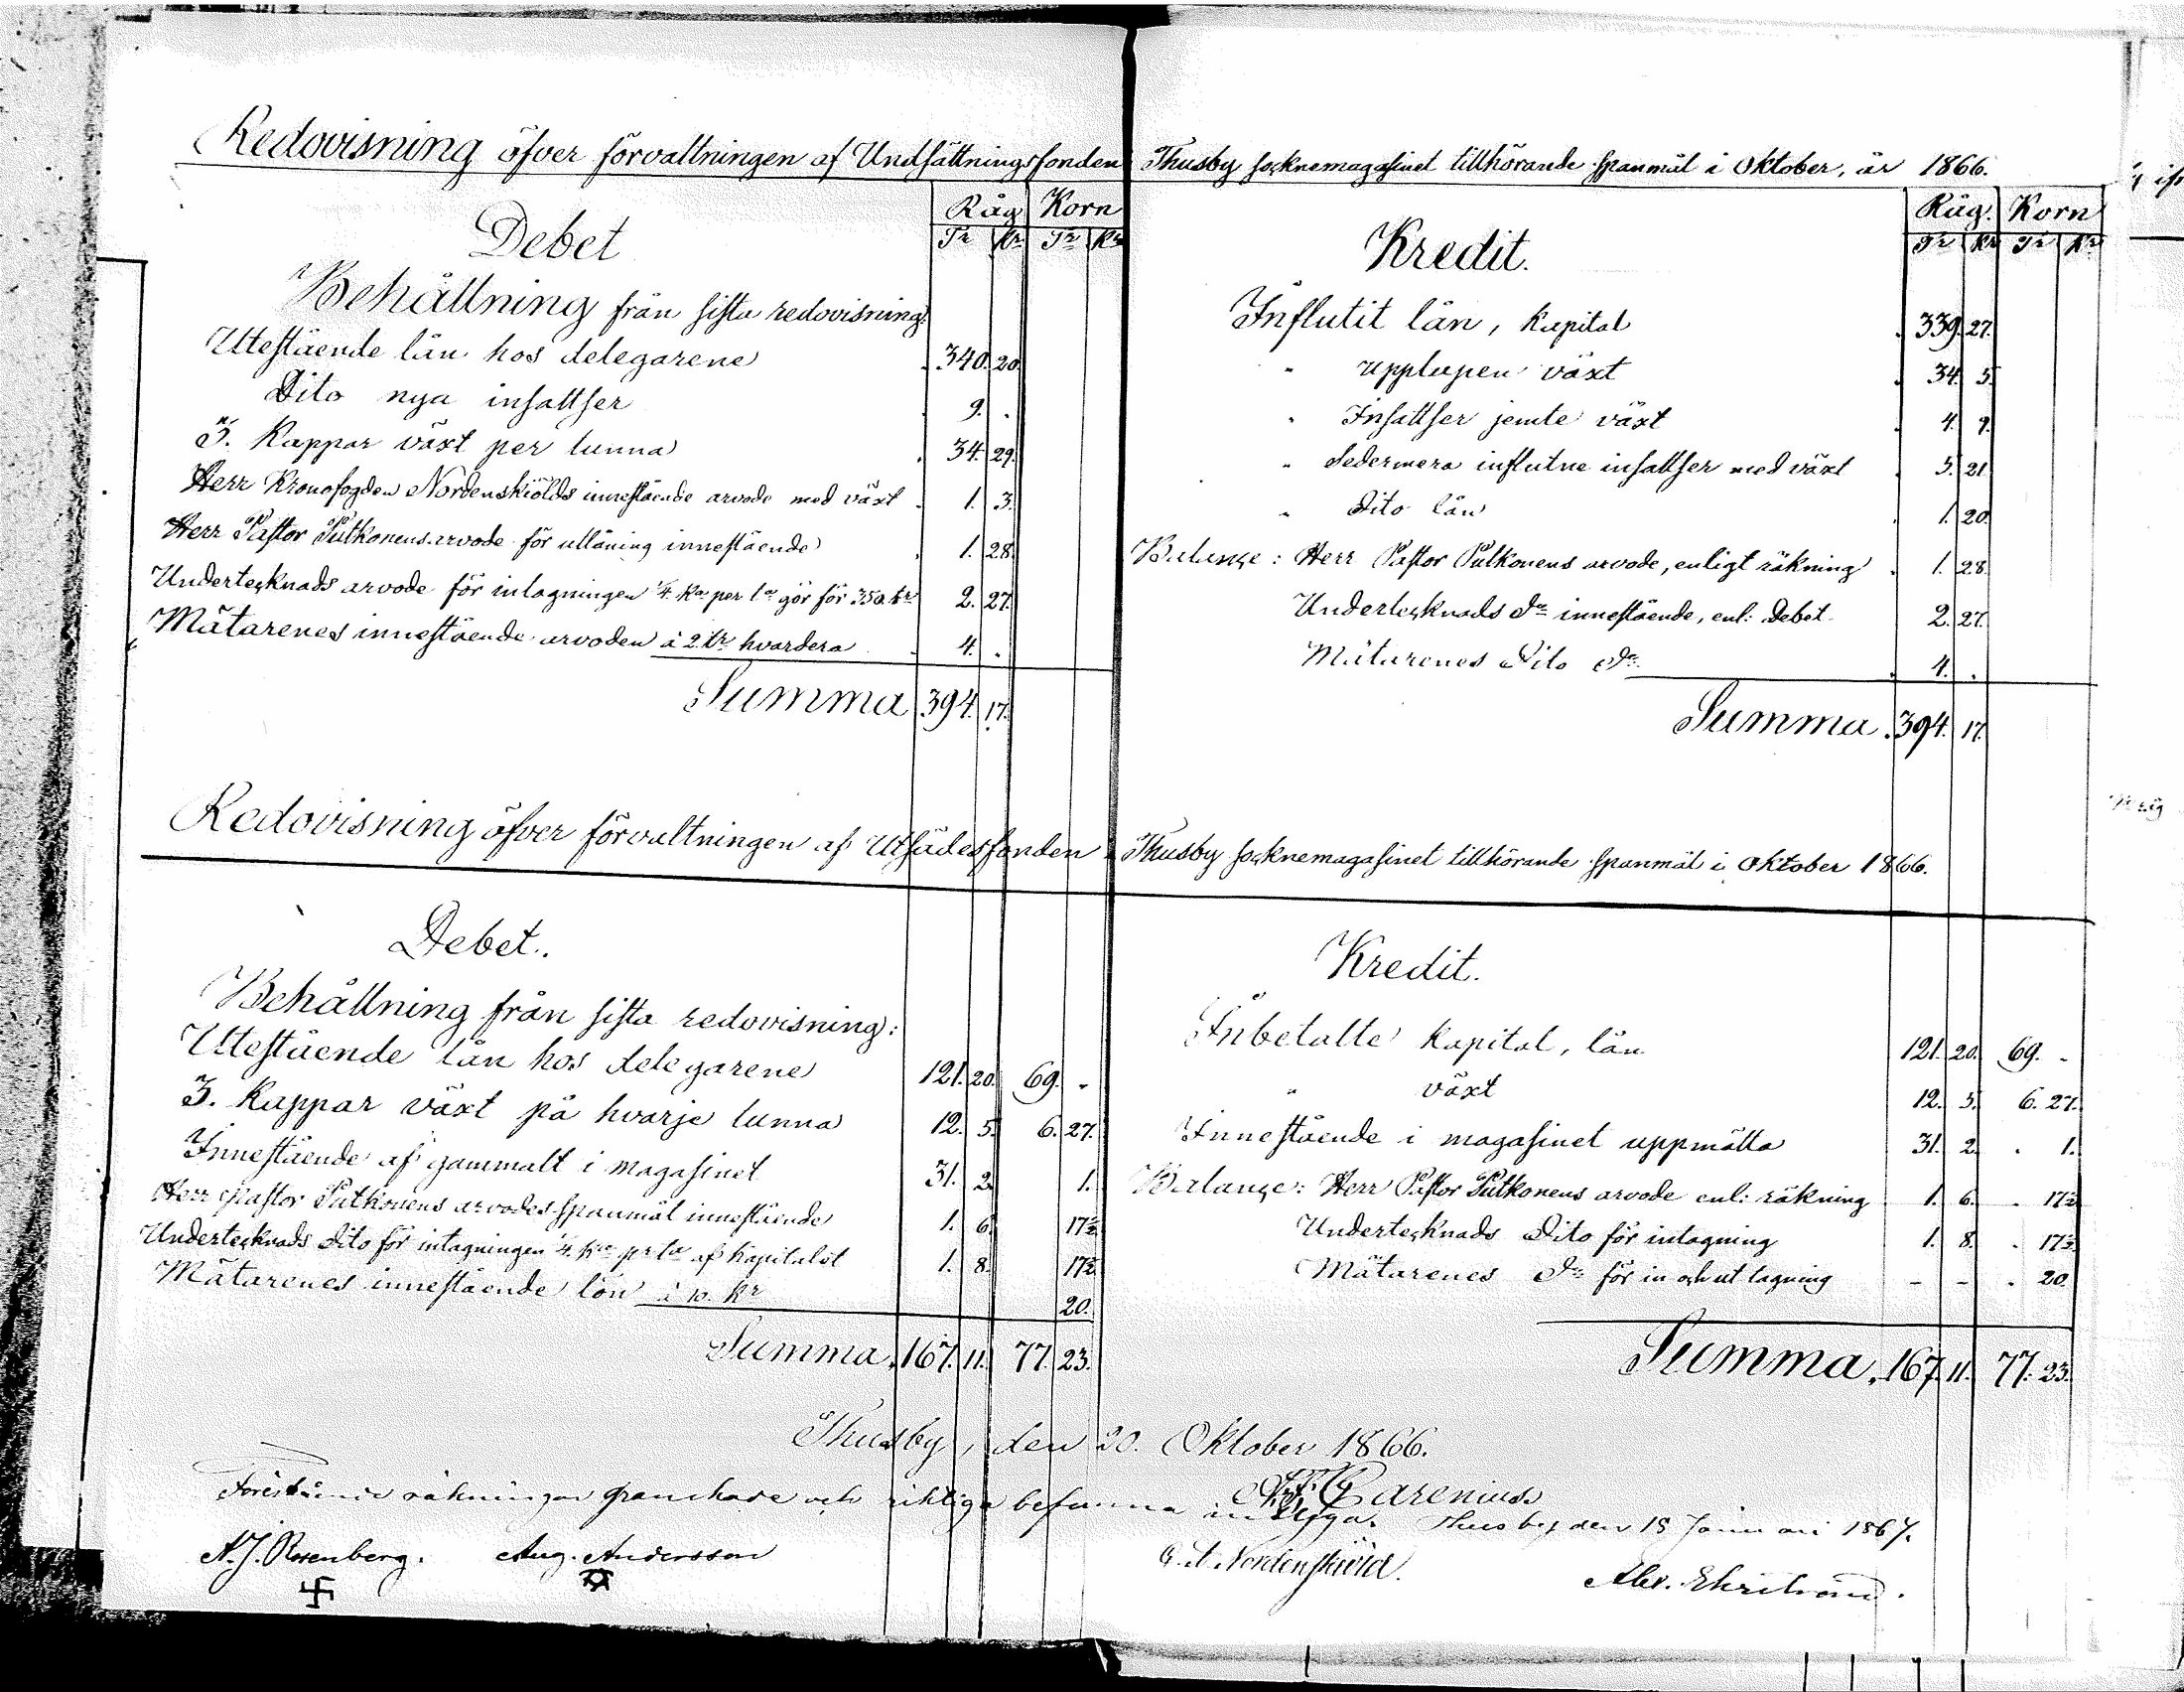 Redovisning öfver förvaltningen af Undsättningsfonden Thusby socknemagasinet tillhörande spanmål i Oktober, år 1866.
Debet
Råg Korn
Tr Kr Tr Kr
Behållning från sista redovisning:
Utestående lån hos delegarene 340. 20.
Dito nya insattser 9. .
3. Kappar växt per tunna 34. 29.
Herr Kronofogden Nordenskiölds innestående arvode med växt 1. 3.
Herr Pastor Putkonens arvode för utlåning innestående 1. 28.
Undertecknads arvode för intagningen 1/4 ka per ta gör för 350 tr 2. 27.
Mätarenes innestående arvoden à 2 tr hvardera 4. .
Summa 394. 17.
Kredit.
Råg. Korn
Tr Kr Tr Kr
Influtit lån, Kapital 339. 27.
" upplupen växt 34. 5.
" Insattser jemte växt 4. 9.
" Sedermera influtne insattser med växt 5. 21.
" Dito lån 1. 20.
Balançe: Herr Pastor Putkonens arvode, enligt räkning 1. 28.
Undertecknads do innestående, enl: Debet 2. 27.
Mätarenes Dito do 4. .
Summa 394. 17.
Redovisning öfver förvaltningen af Utsädesfonden Thusby socknemagasinet tillhörande spanmål i Oktober 1866.
Debet.
Behållning från sista redovisning:
Utestående lån hos delegarene 121. 20. 69. .
3. Kappar växt på hvarje tunna 12. 5. 6. 27.
Innestående af gammalt i magasinet 31. 2. 1.
Herr Pastor Putkonens arvodes spanmål innestående 1. 6. 17 1/2
Undertecknads Dito för intagningen 1/4 ka pr ta af Kapitalet 1. 8. 17 1/2
Mätarenes innestående lön à 10. Kr 20.
Summa. 167. 11. 77. 23.
Kredit.
Inbetalte Kapital, lån 121. 20. 69. .
" växt 12. 5. 6. 27.
Innestående i magasinet uppmätta 31. 2. . 1.
Balançe: Herr Pastor Putkonens arvode enl: räkning 1. 6. . 17 1/2
Undertecknads Dito för intagning 1. 8. . 17 1/2
Mätarenes do för in och ut tagning - - . 20.
Summa. 167. 11. 77. 23.
Thusby, den 20. Oktober 1866.
Carenius
Förestående räkningar granskade och riktiga befunna intyga. Thusby den 18 Januari 1867.
A. J. Rosenberg. Aug. Andersson
Nordenskiöld. Alex. Ehrström.